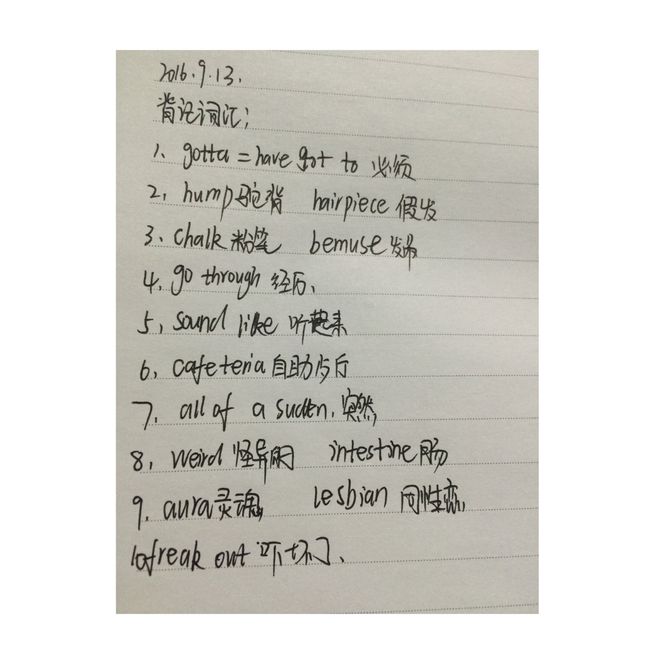 2016.9.13.
背记词汇;
1、gotta = have got to 必须
2, hump驼背 hairpiece 假发
3、chalk 粉笔 bemuse 发呆
4, go through 经历、
5, sound like 听起来
6, cafeteria 自助餐厅
7, all of a sudden, 突然
8, weird 怪异的 intestine 肠
9, aura灵魂 lesbian 同性恋
10freak out 吓坏了、